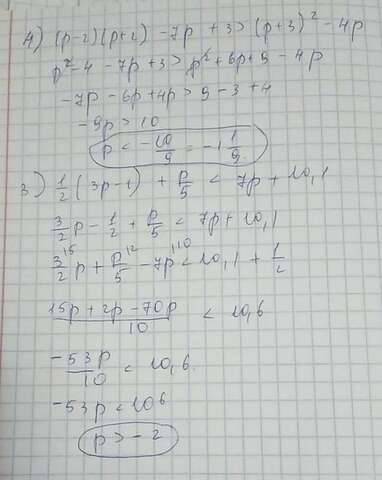 4) (p-2)(p+2) -7p +3 > (p+3)² - 4p
p² - 4 - 7p + 3 > p² + 6p + 9 - 4p
-7p - 6p + 4p > 9 - 3 + 4
-9p > 10
p < -10/9 = -1 1/9.
3) 1/2 (3p-1) + p/5 < 7p + 10,1
3/2 p - 1/2 + p/5 < 7p + 10,1
3/2 p + p/5 - 7p < 10,1 + 1/2
(15p + 2p - 70p)/10 < 10,6
-53p/10 < 10,6.
-53p < 106
p > -2